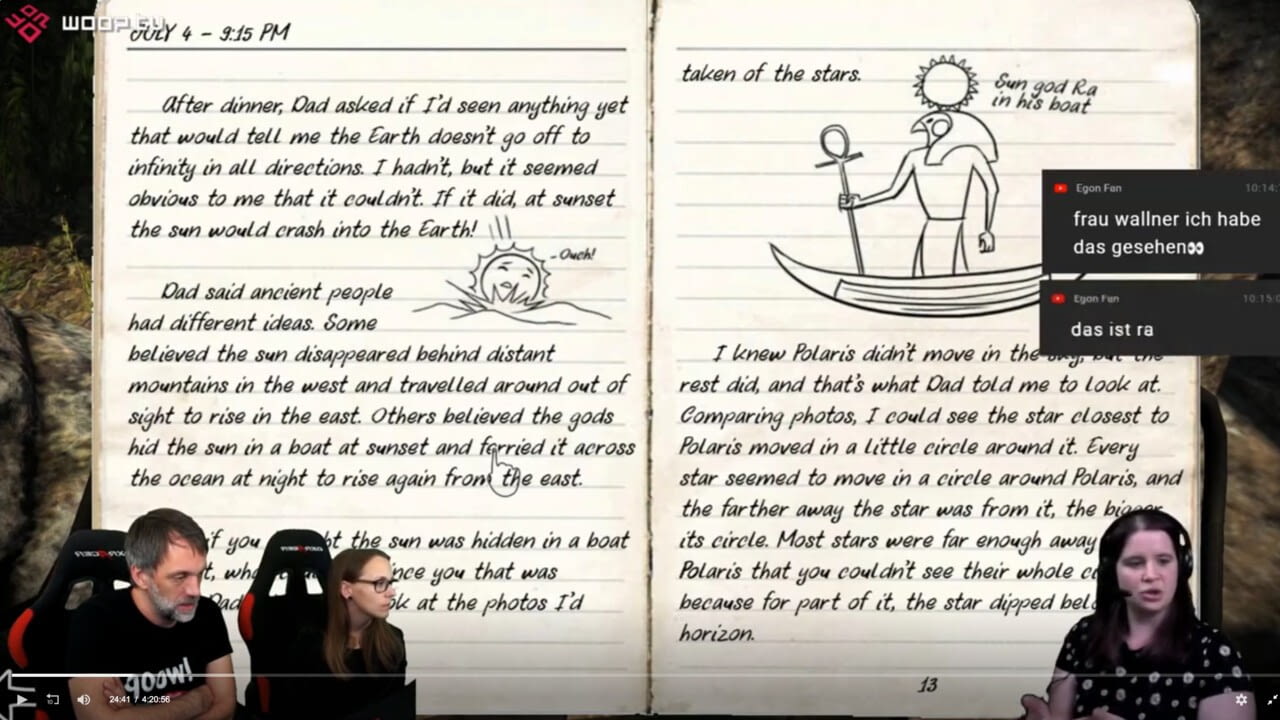 woop.tv
JULY 4 – 9:15 PM
After dinner, Dad asked if I'd seen anything yet
that would tell me the Earth doesn't go off to
infinity in all directions. I hadn't, but it seemed
obvious to me that it couldn't. If it did, at sunset
the sun would crash into the Earth!
- Ouch!
Dad said ancient people
had different ideas. Some
believed the sun disappeared behind distant
mountains in the west and travelled around out of
sight to rise in the east. Others believed the gods
hid the sun in a boat at sunset and ferried it across
the ocean at night to rise again from the east.
if you the sun was hidden in a boat
you that was
Dad at the photos I'd
taken of the stars.
Sun god Ra
in his boat
I knew Polaris didn't move in the sky, but the
rest did, and that's what Dad told me to look at.
Comparing photos, I could see the star closest to
Polaris moved in a little circle around it. Every
star seemed to move in a circle around Polaris, and
the farther away the star was from it, the bigger
its circle. Most stars were far enough away
Polaris that you couldn't see their whole
because for part of it, the star dipped
horizon.
13
Egon Fan 10:14:
frau wallner ich habe
das gesehen👀
Egon Fan 10:15:
das ist ra
goow!
24:41 / 4:20:56